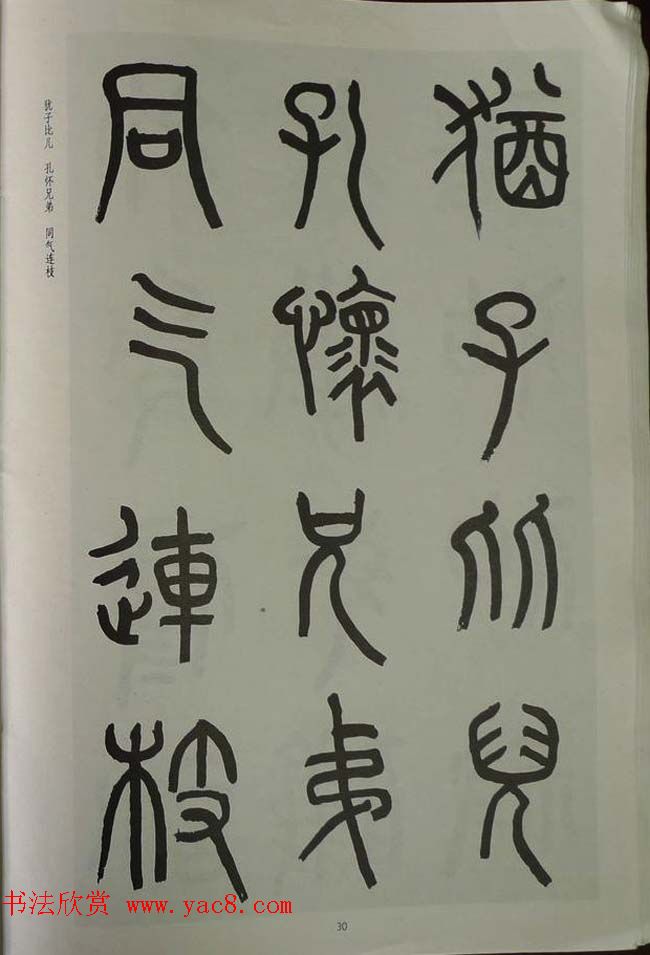 猶子比兒
孔懷兄弟
同气連枝
犹子比儿 孔怀兄弟 同气连枝
书法欣赏 www.yac8.com
30